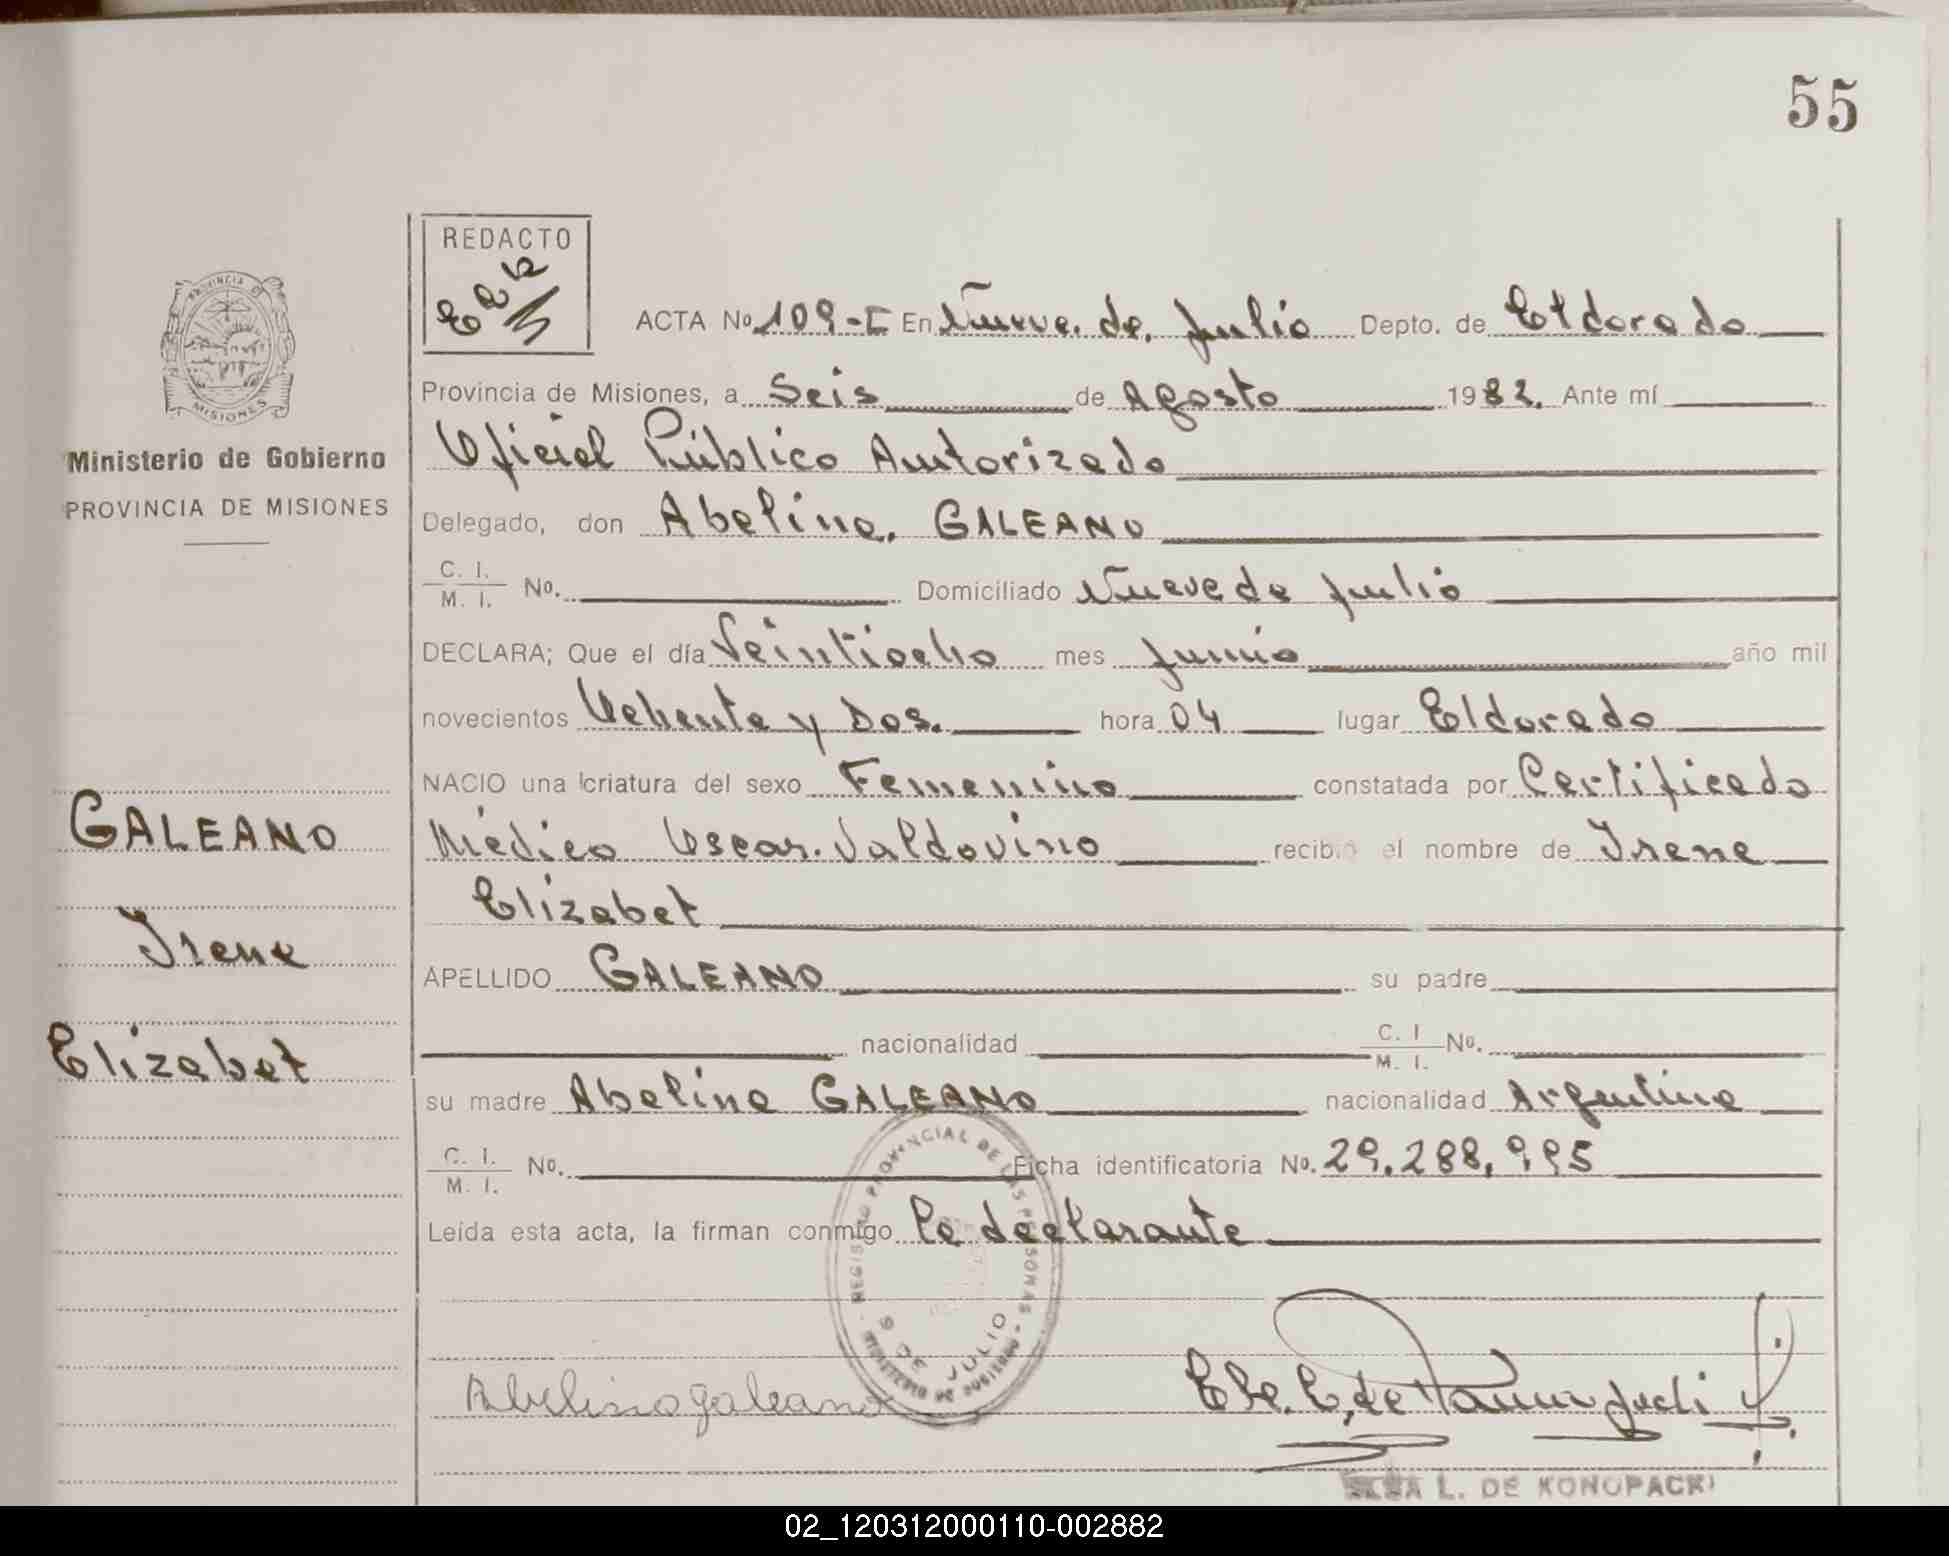 55
REDACTO
ACTA No 109-I En Nueve de Julio Depto. de Eldorado
Provincia de Misiones, a Seis de Agosto 1982. Ante mí
Oficial Público Autorizado
Delegado, don Abelina GALEANO
C. I.
M. I. No. Domiciliado Nueve de Julio
DECLARA; Que el día Veintiocho mes Junio año mil
novecientos Ochenta y Dos. hora 04 lugar Eldorado
NACIO una criatura del sexo Femenino constatada por Certificado
Médico Oscar Valdovino recibió el nombre de Irene
Elizabet
APELLIDO GALEANO su padre
nacionalidad C. I
M. I. No.
su madre Abelina GALEANO nacionalidad Argentina
C. I.
M. I. No. Ficha identificatoria No. 29.288.995
Leída esta acta, la firman conmigo la declarante
Abelina galeano
L. DE KONOPACKI
PROVINCIA DE
MISIONES
Ministerio de Gobierno
PROVINCIA DE MISIONES
GALEANO
Irene
Elizabet
REGISTRO PROVINCIAL DE LAS PERSONAS
9 DE JULIO
MINISTERIO DE GOBIERNO
02_120312000110-002882